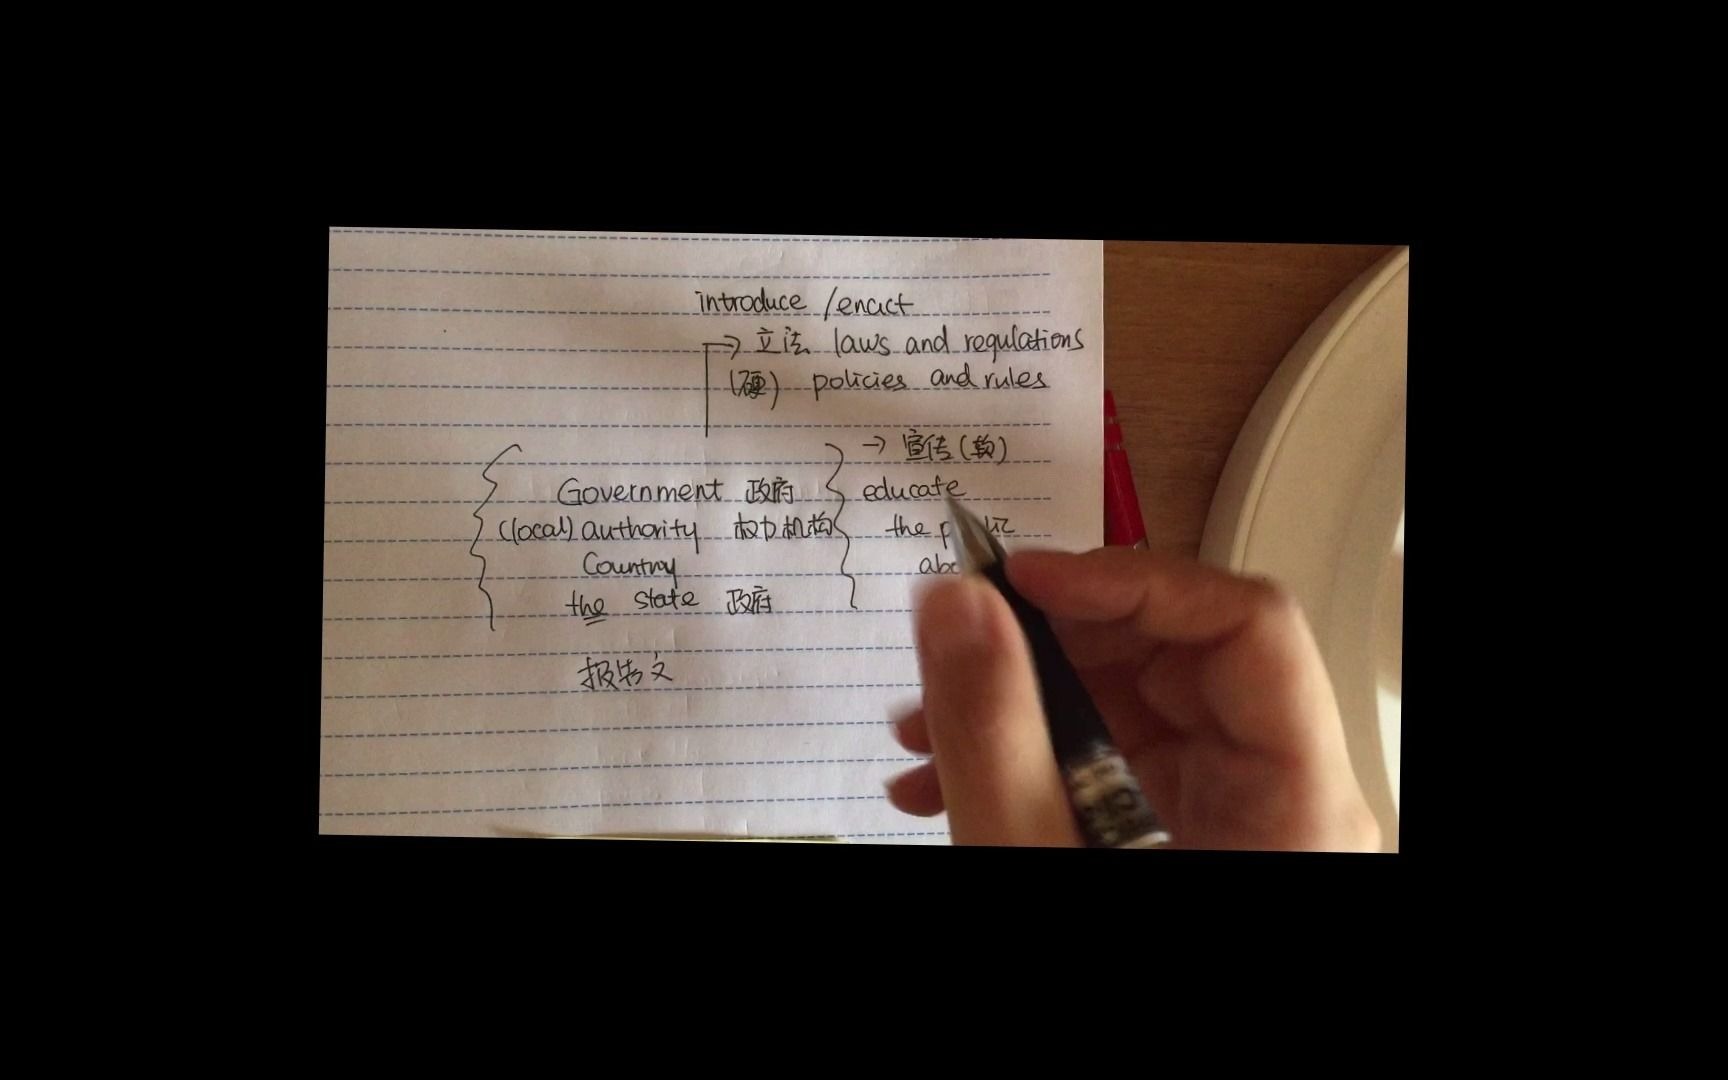 introduce / enact
→ 立法 laws and regulations
(硬) policies and rules
→ 宣传 (软)
Government 政府 educate
(local) authority 权力机构 the
Country
the state 政府
报告文